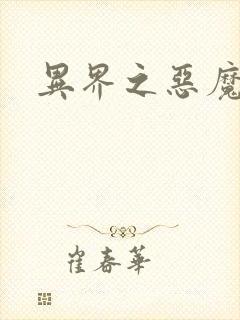 異界之惡魔
崔春華